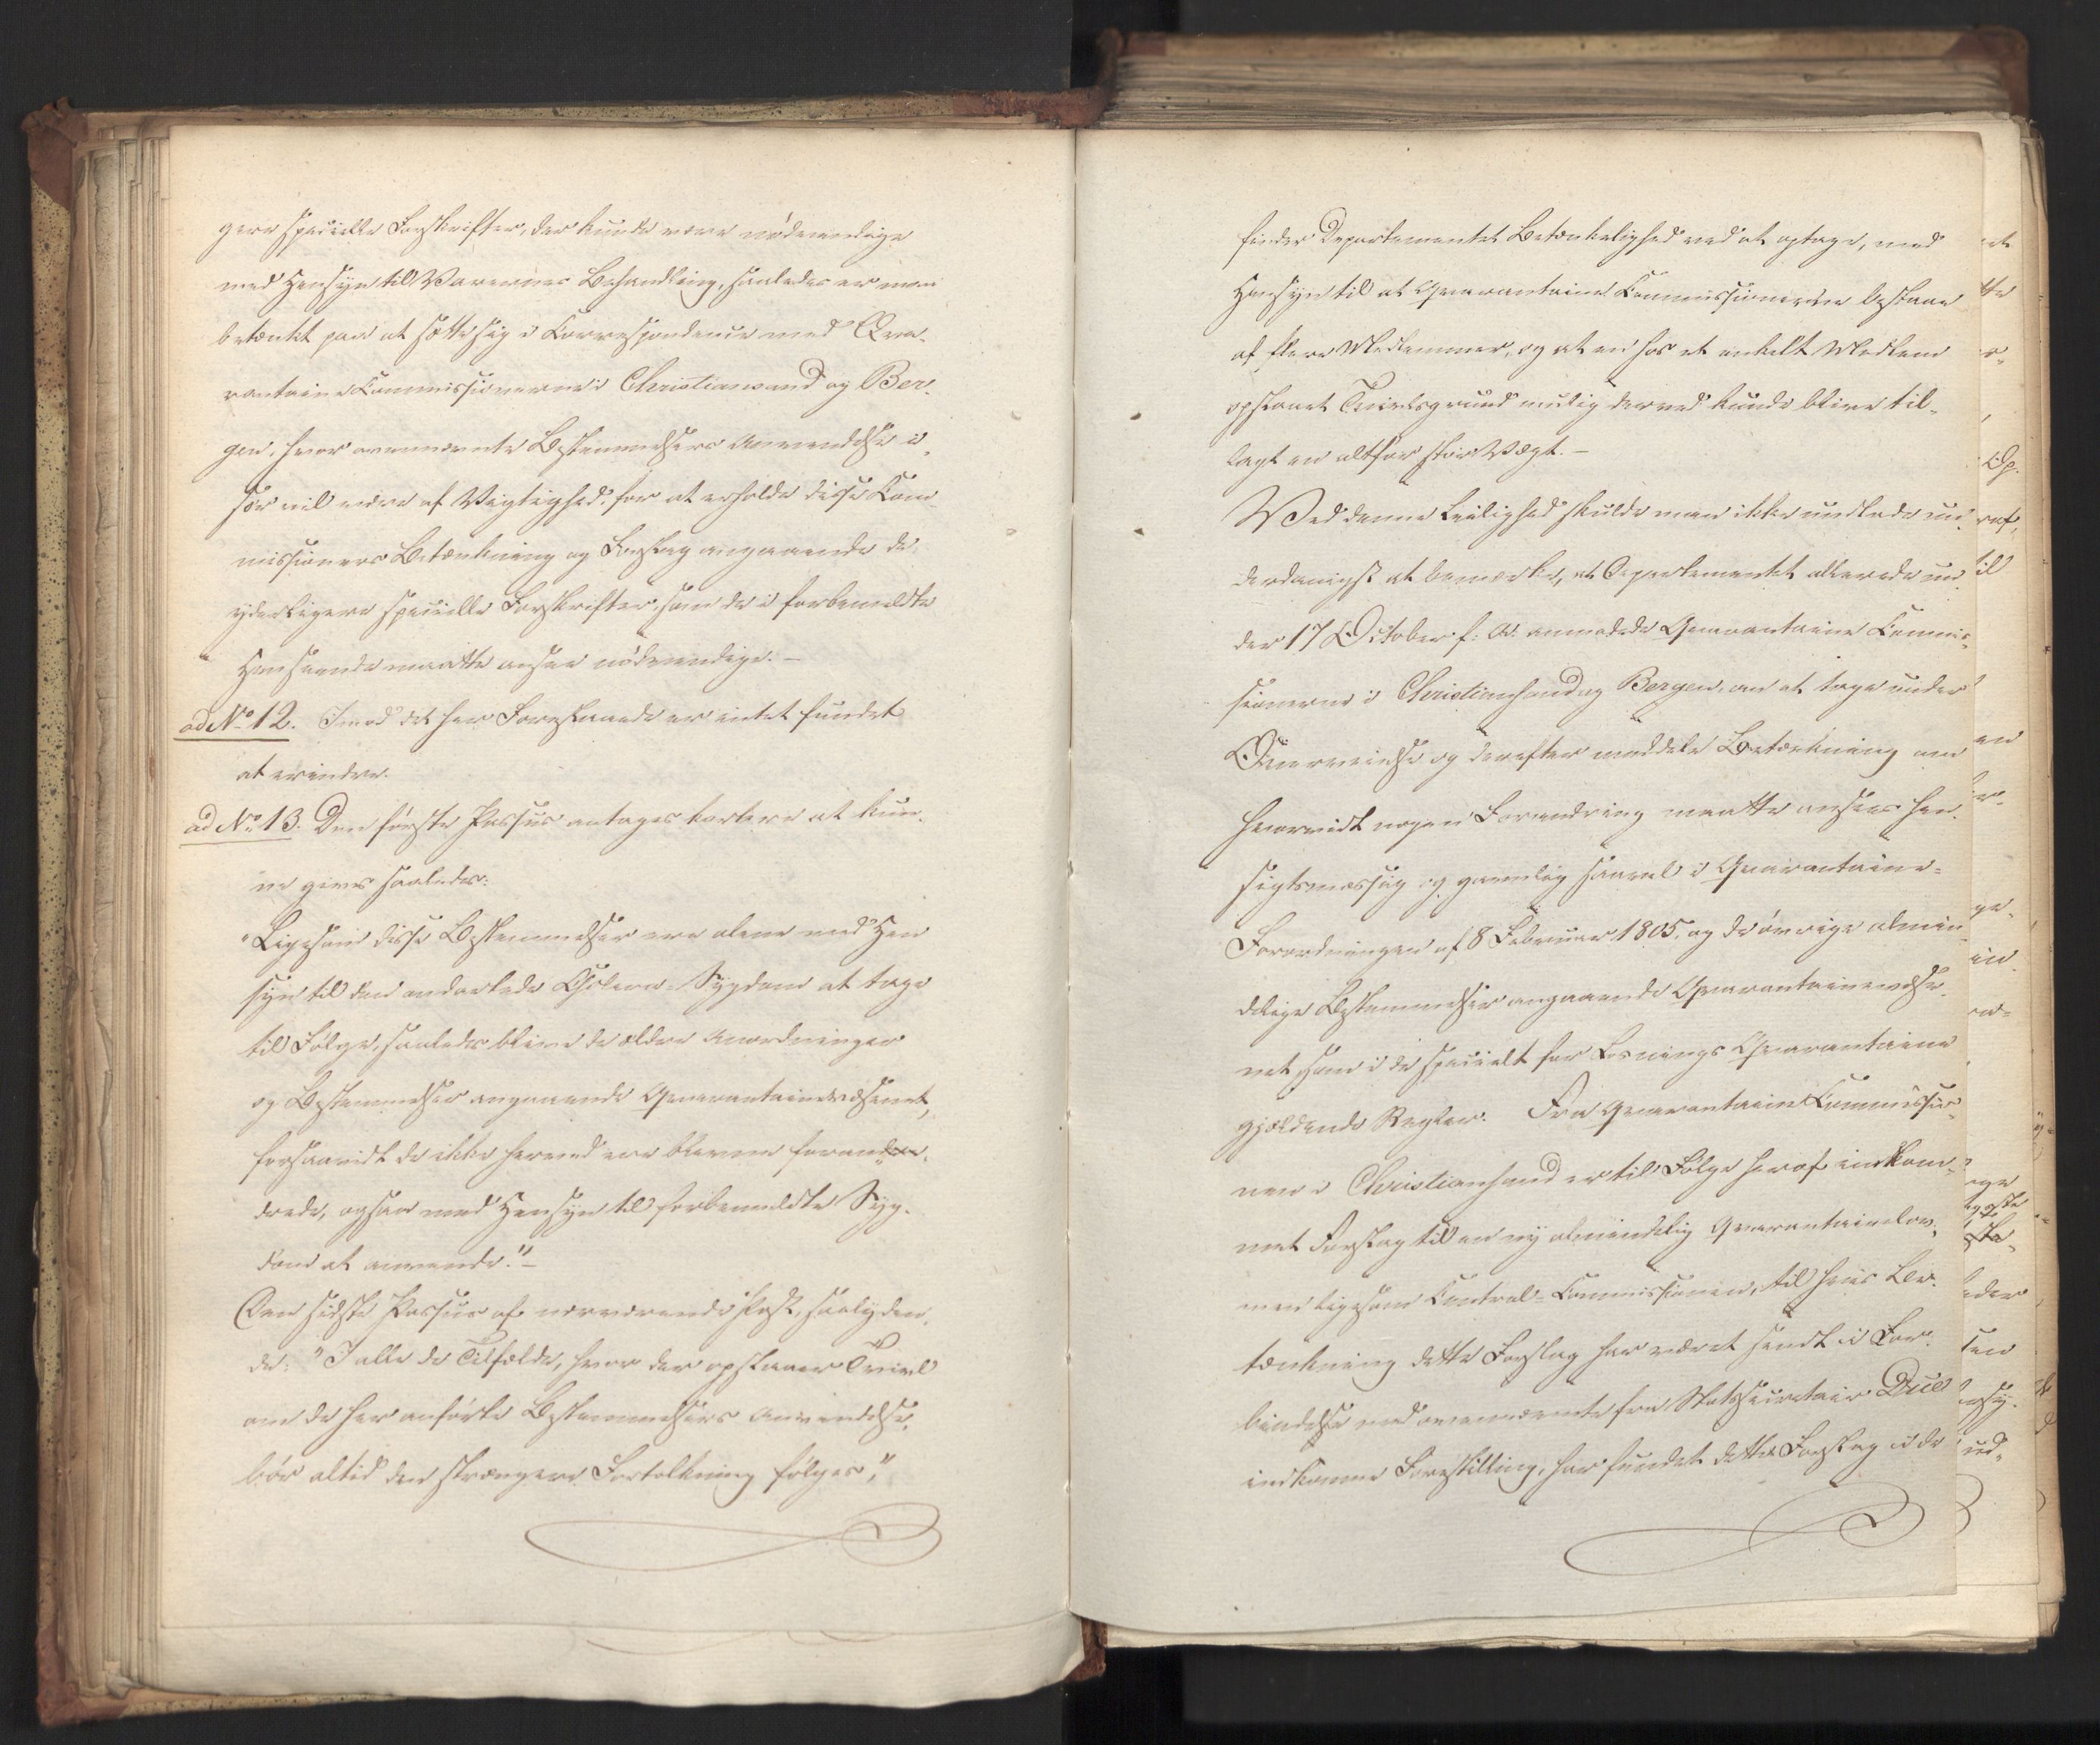 gere specielle Forskrifter, der kunde være nødvendige
med Hensyn til Varernes Behandling, saaledes er man
betænkt paa at sætte sig i Correspondence med Qva-
rantaine Commissionerne i Christiansand og Ber-
gen, hvor ovennævnte Bestemmelsers Anvendelse i-
sær vil være af Vigtighed, for at erholde disse Com-
missioners Betænkning og Forslag angaaende de
yderligere specielle Forskrifter, som de i forbemeldte
Henseende maatte ansee nødvendige. –
ad No 12. Imod det her Foreslaaede er intet fundet
at erindre.
ad No 13. Den første Passus antages kortere at kun-
ne gives saaledes:
"Ligesom disse Bestemmelser ere alene med Hen
syn til den ondartede Cholera-Sygdom at tage
til Følge, saaledes blive de ældre Anordninger
og Bestemmelser angaaende Qvarantainevæsenet,
forsaavidt de ikke herved ere blevne foran-
drede, ogsaa med Hensyn til forbemeldte Syg-
dom at anvende." –
Den sidste Passus af nærværende Post, saalyden-
de: "I alle de Tilfælde, hvor der opstaaer Tvivl
om de her anførte Bestemmelsers Anvendelse,
bør altid den strængere Fortolkning følges,"
finder Departementet Betænkelighed ved at optage, med
Hensyn til at Qvarantaine Commissionerne bestaae
af flere Medlemmer, og at en hos et enkelt Medlem
opstaaet Tvivlsgrund mulig derved kunde blive til-
lagt en altfor stor Vægt. –
Ved denne Leilighed skulde man ikke undlade un-
derdanigst at bemærke, at Departementet allerede un-
der 17 October f: A. anmodede Qvarantaine Commis-
sionerne i Christianssand og Bergen, om at tage under
Overveielse og derefter meddele Betænkning om
hvorvidt nogen Forandring maatte ansees hen-
sigtsmæssig og gavnlig saavel i Qvarantaine-
Forordningen af 8 Februar 1805, og de øvrige almin-
delige Bestemmelser angaaende Qvarantainevæse-
net, som i de specielt for Losnings Qvarantaine
gjældende Regler. Fra Qvarantaine Commissio-
nen i Christianssand er til Følge heraf indkom-
met Forslag til en ny almindelig Qvarantainelov,
men ligesom Central-Commissionen, til hvis Be-
tænkning dette Forslag har været sendt i For-
bindelse med ovennævnte fra Statssecretair Due
indkomne Forestilling, har fundet dette Forslag i de